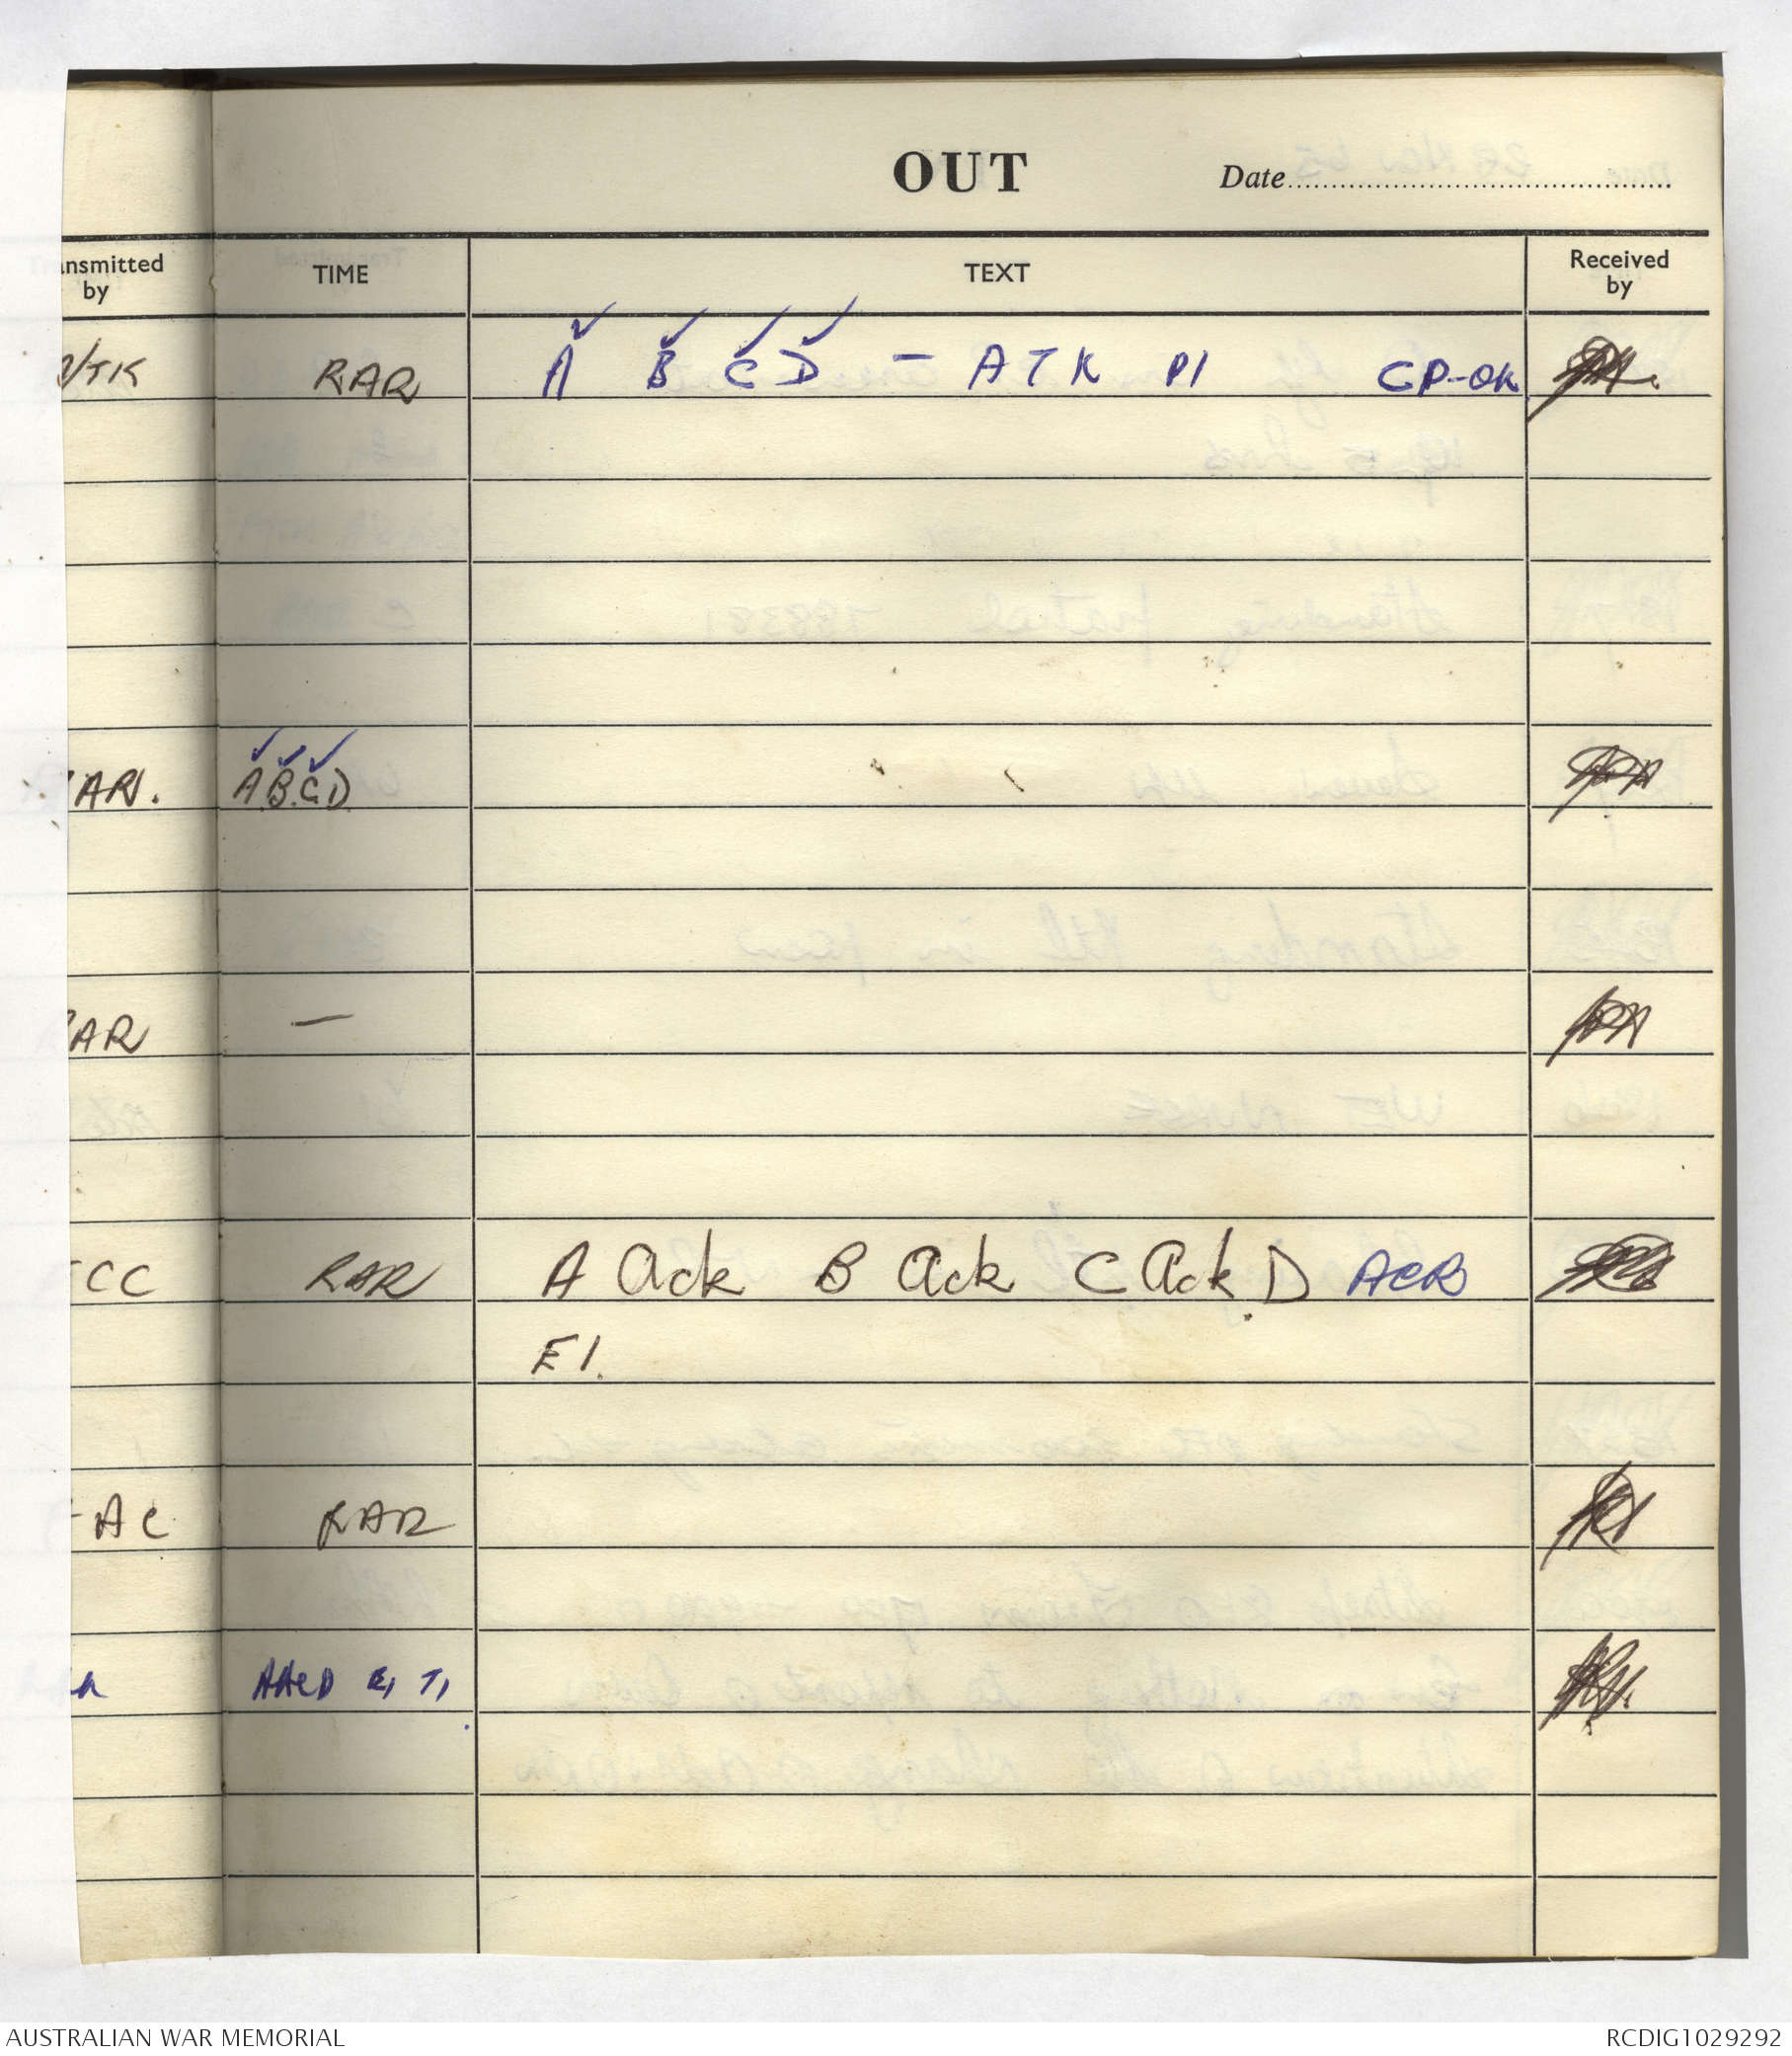 OUT
Date
ansmitted by TIME TEXT Received by
/TK RAR A B C D - ATK Pl CP-OK
AR. A.B.C.D
AR —
CC RAR A Ack B Ack C Ack D ACK
E1.
AC RAR
E, T,
AUSTRALIAN WAR MEMORIAL RCDIG1029292